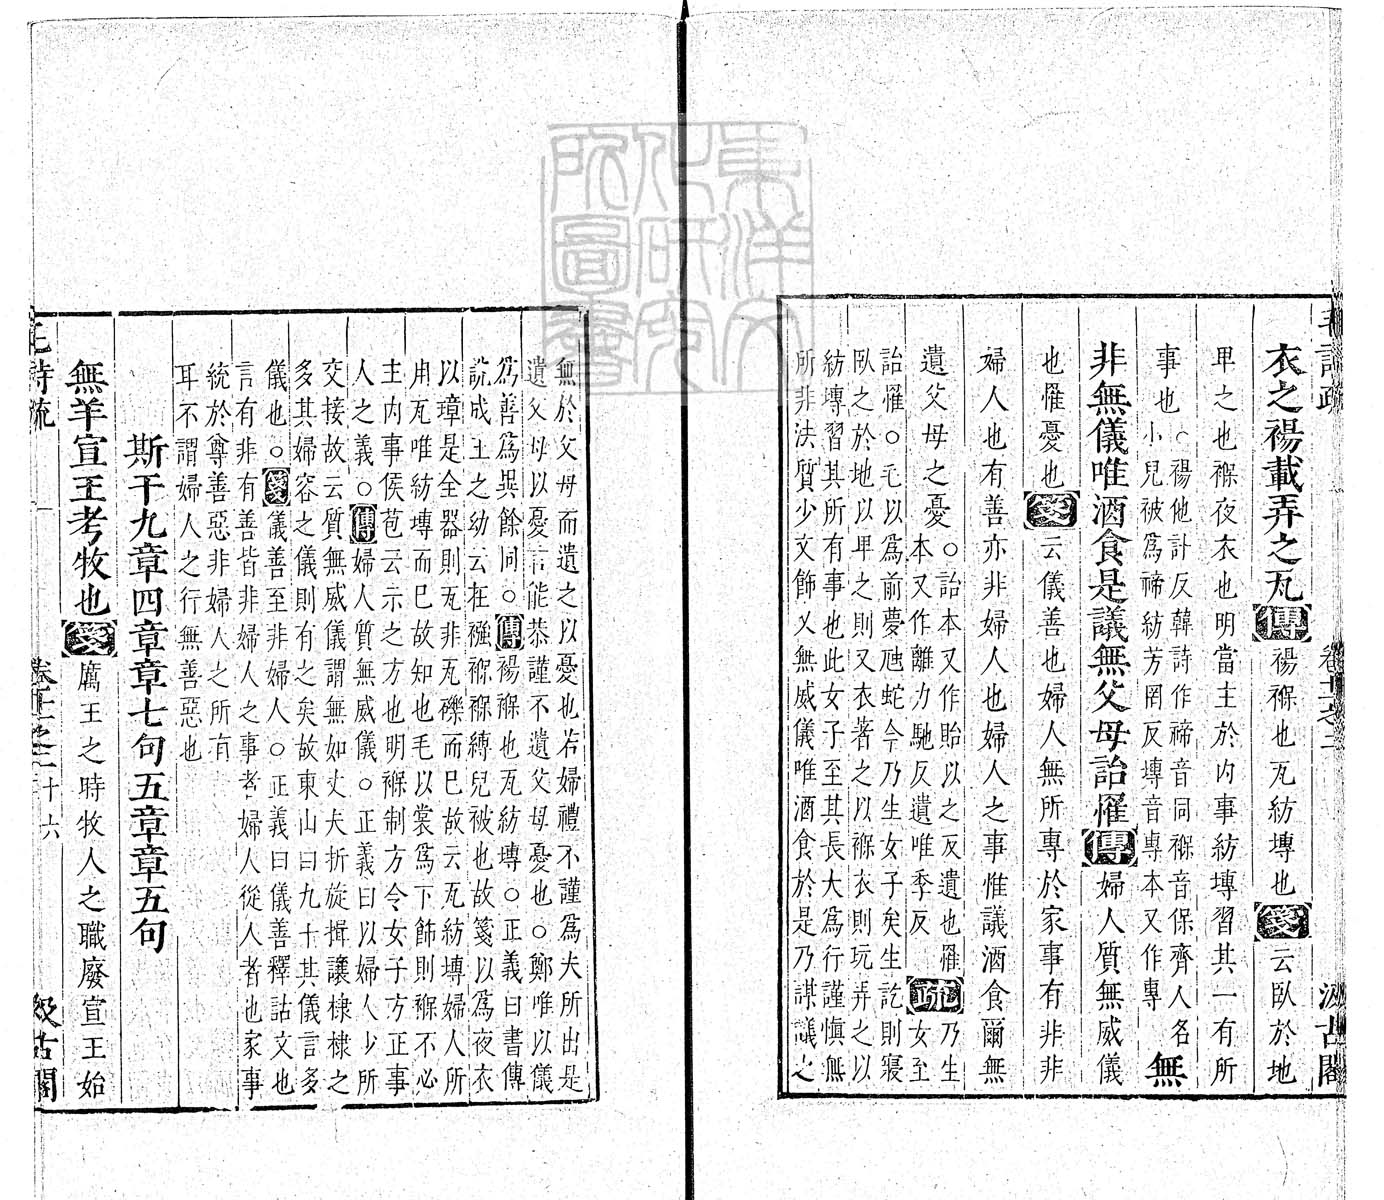 毛詩疏 卷十一之二 汲古閣
衣之裼載弄之瓦傳裼褓也瓦紡塼也箋云臥於地
卑之也褓夜衣也明當主於内事紡塼習其一有所
事也○裼他計反韓詩作禘音同褓音保齊人名
小兒被爲禘紡芳罔反塼音專本又作專
無
非無儀唯酒食是議無父母詒罹傳婦人質無威儀
也罹憂也箋云儀善也婦人無所專於家事有非非
婦人也有善亦非婦人也婦人之事惟議酒食爾無
遺父母之憂○詒本又作貽以之反遺也罹
本又作離力馳反遺唯季反
疏乃生
女至
詒罹○毛以爲前夢虺蛇今乃生女子矣生訖則寢
臥之於地以卑之則又衣著之以褓衣則玩弄之以
紡塼習其所有事也此女子至其長大爲行謹愼無
所非法質少文飾又無威儀唯酒食於是乃謀議之
無於父母而遺之以憂也若婦禮不謹爲夫所出是
遺父母以憂言能恭謹不遺父母憂也○鄭唯以儀
爲善爲異餘同○傳裼褓也瓦紡塼○正義曰書傳
說成王之幼云在襁褓褓縛兒被也故箋以爲夜衣
以璋是全器則瓦非瓦礫而已故云瓦紡塼婦人所
用瓦唯紡塼而已故知也毛以裳爲下飾則褓不必
主内事侯苞云示之方也明褓制方令女子方正事
人之義○傳婦人質無威儀○正義曰以婦人少所
交接故云質無威儀謂無如丈夫折旋揖讓棣棣之
多其婦容之儀則有之矣故東山曰九十其儀言多
儀也○箋儀善至非婦人○正義曰儀善釋詁文也
言有非有善皆非婦人之事者婦人從人者也家事
統於尊善惡非婦人之所有
耳不謂婦人之行無善惡也
斯干九章四章章七句五章章五句
無羊宣王考牧也箋厲王之時牧人之職廢宣王始
毛詩疏 卷十一之二 十六 汲古閣
東洋文化研究所圖書